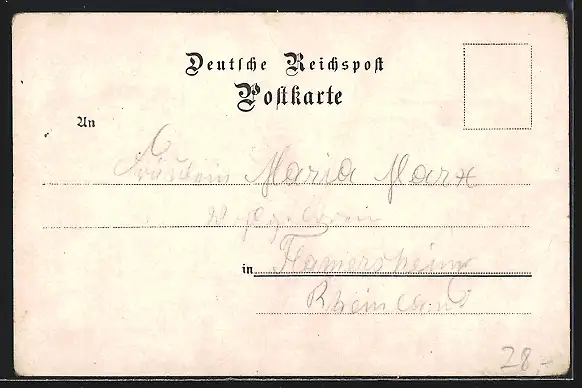 Deutsche Reichspost
Postkarte
An
Fräulein Maria Marx
in Flamersheim
Rheinland
28,-